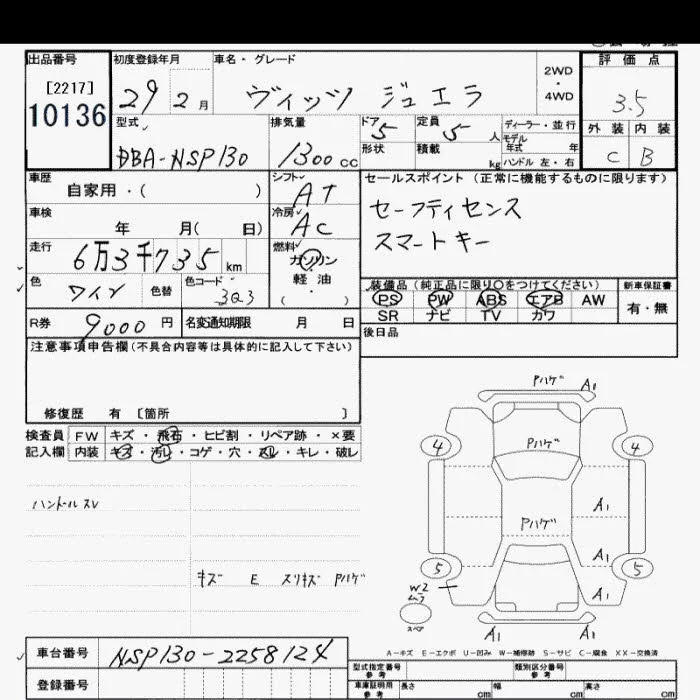 出品番号 初度登録年月 車名・グレード 評価点
[2217]
10136
29 2月 ヴィッツ ジュエラ 2WD・4WD 3.5
型式 排気量 ドア 定員 ディーラー・並行 外装 内装
DBA-NSP130 1300cc 5 5人 モデル年式 年 C B
形状 積載 kg ハンドル 左・右
車歴 シフト セールスポイント (正常に機能するものに限ります)
自家用・( ) AT セーフティセンス
車検 冷房 スマートキー
年 月( 日) AC
走行 燃料
6万3千735km ガソリン・軽油
色 ワイン 色替 色コード 3Q3 ( )
装備品 (純正品に限り○をつけてください) 新車保証書
PS PW ABS エアB AW 有・無
SR ナビ TV カワ
R券 9000円 名変通知期限 月 日
後日品
注意事項申告欄(不具合内容等は具体的に記入して下さい)
修復歴 有 〔箇所 〕
検査員 FW キズ・飛石・ヒビ割・リペア跡・×要
記入欄 内装 キズ・汚レ・コゲ・穴・スレ・キレ・破レ
ハンドルスレ
キズ E スリキズ Pハゲ
Pハゲ A1
4 Pハゲ 4
A1
Pハゲ
A1
5 5
W2 A1
ムラ
スペア
A1 A1
A-キズ E-エクボ U-凹み W-補修跡 S-サビ C-腐食 XX-交換済
車台番号 NSP130-2258124
型式指定番号 参考 類別区分番号 参考
登録番号 車庫証明用 参考 長さ cm 幅 cm 高さ cm